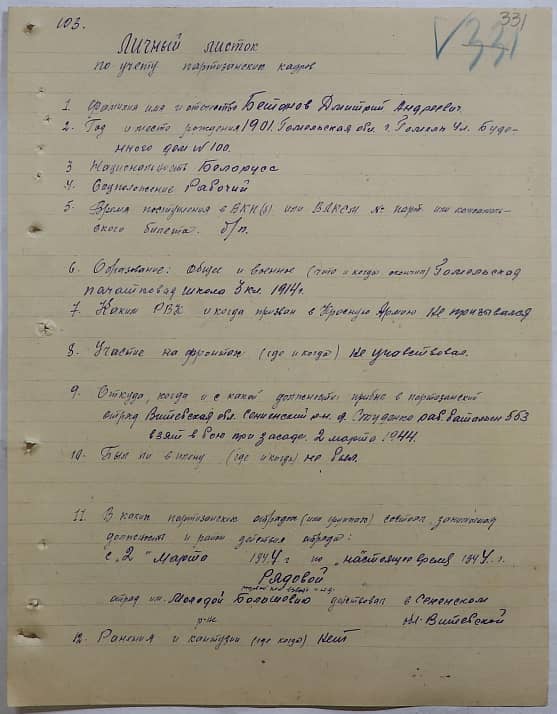 103.
331
√331
Личный листок
по учету партизанских кадров
1. Фамилия имя и отчество Бетонов Дмитрий Андреевич
2. Год и место рождения 1901. Гомельская обл. г. Гомель ул. Буде-
нного дом N 100.
3. Национальность Белорусс
4. Соцположение Рабочий
5. Время поступления в ВКП(б) или ВЛКСМ № парт. или комсомоль-
ского билета. б/п.
6. Образование: Общее и военное (что и когда окончил) Гомельская
школа 3 кл. 1914 г.
7. Каким РВК и когда призван в Красную Армию Не призывался
8. Участие на фронтах (где и когда) Не учавствовал.
9. Откуда, когда и с какой должности прибыл в партизанский
отряд Витебская обл. Сенненский р-н. д. Студенка раб. батальон 553
взят в бою при засаде. 2 марта 1944.
10. Был ли в плену (где и когда) не был.
11. В каких партизанских отрядах (или группах) состоял, занимаемая
должность и район действия отряда:
с „2" Марта 1944 г по „настоящее время 1944. г.
Рядовой
отряд им. Молодой Большевик действовал в Сененском
р-не обл. Витебской
12. Ранения и контузии (где когда) Нет